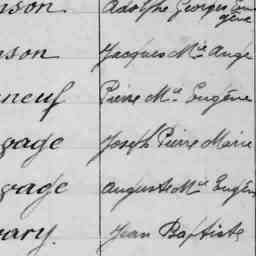 nson Adolphe Georges Eugène
nson Jacques Mie Ange
neuf Pierre Mie Eugène
gage Joseph Pierre Marie
gage Auguste Mie Eugène
ary. Jean Baptiste